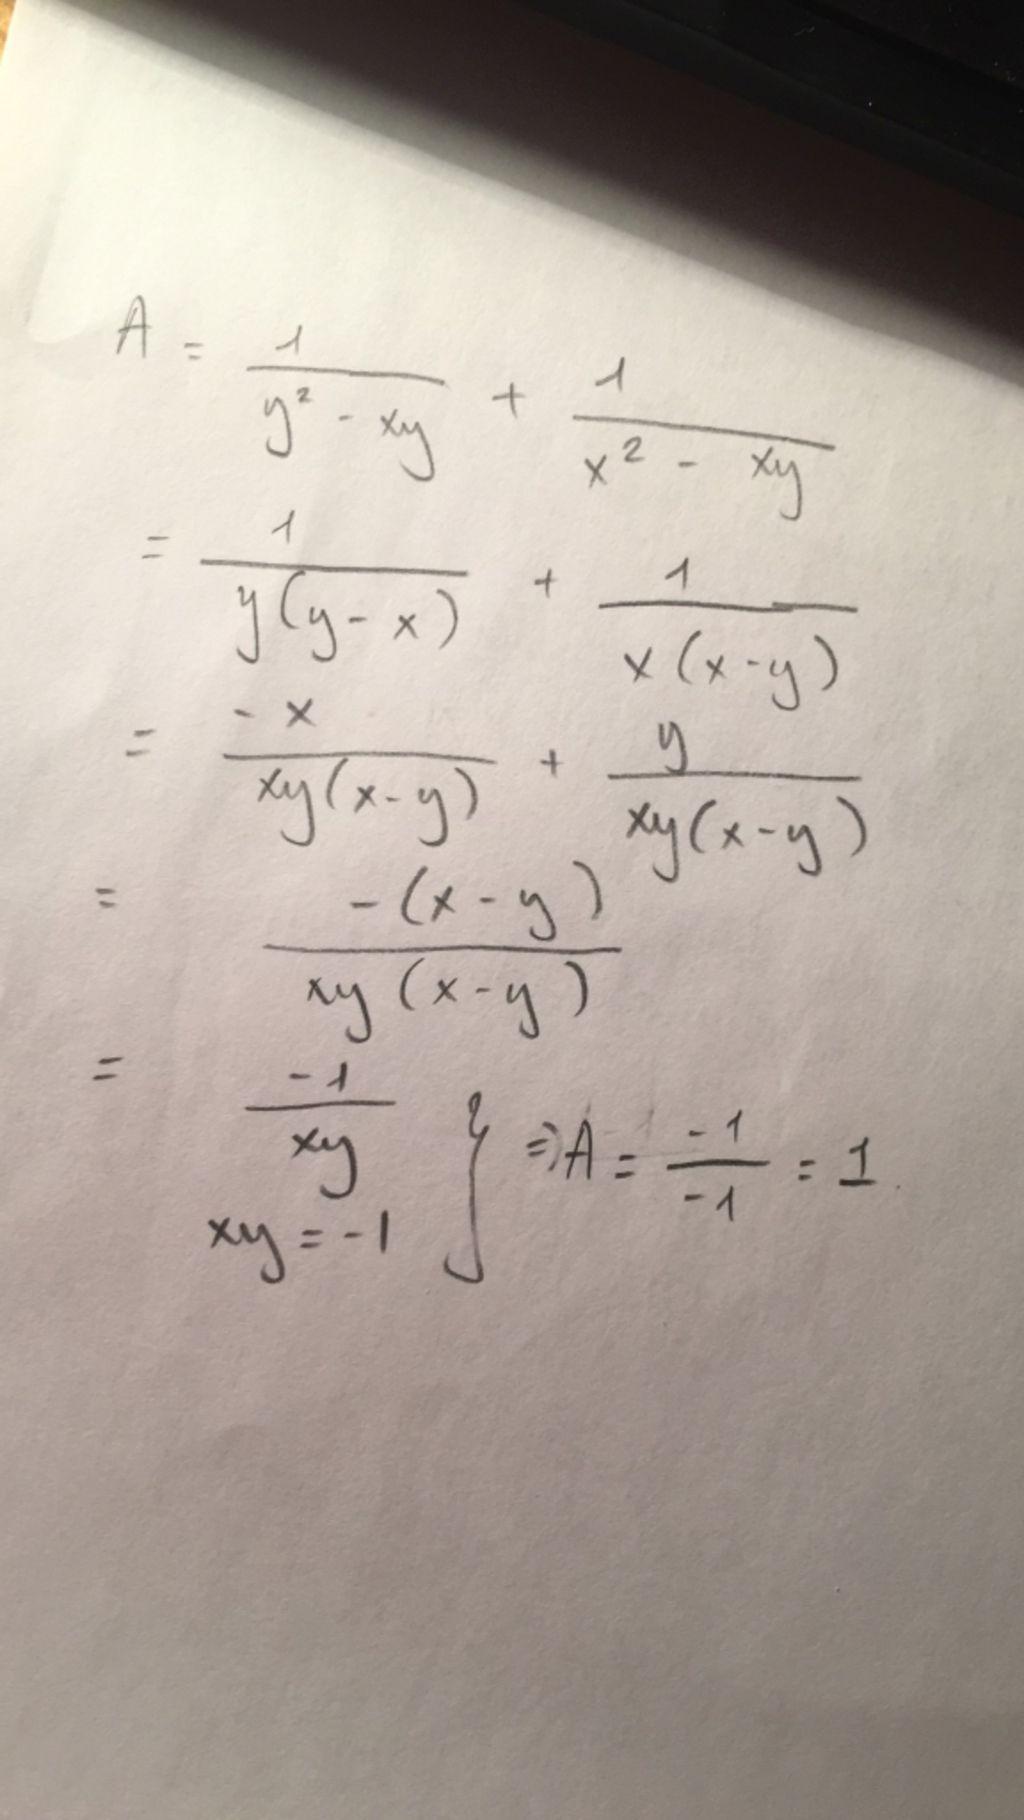 A = 1/(y² - xy) + 1/(x² - xy)
= 1/(y(y - x)) + 1/(x(x - y))
= -x/(xy(x - y)) + y/(xy(x - y))
= -(x - y)/(xy(x - y))
= -1/xy } => A = -1/-1 = 1.
xy = -1